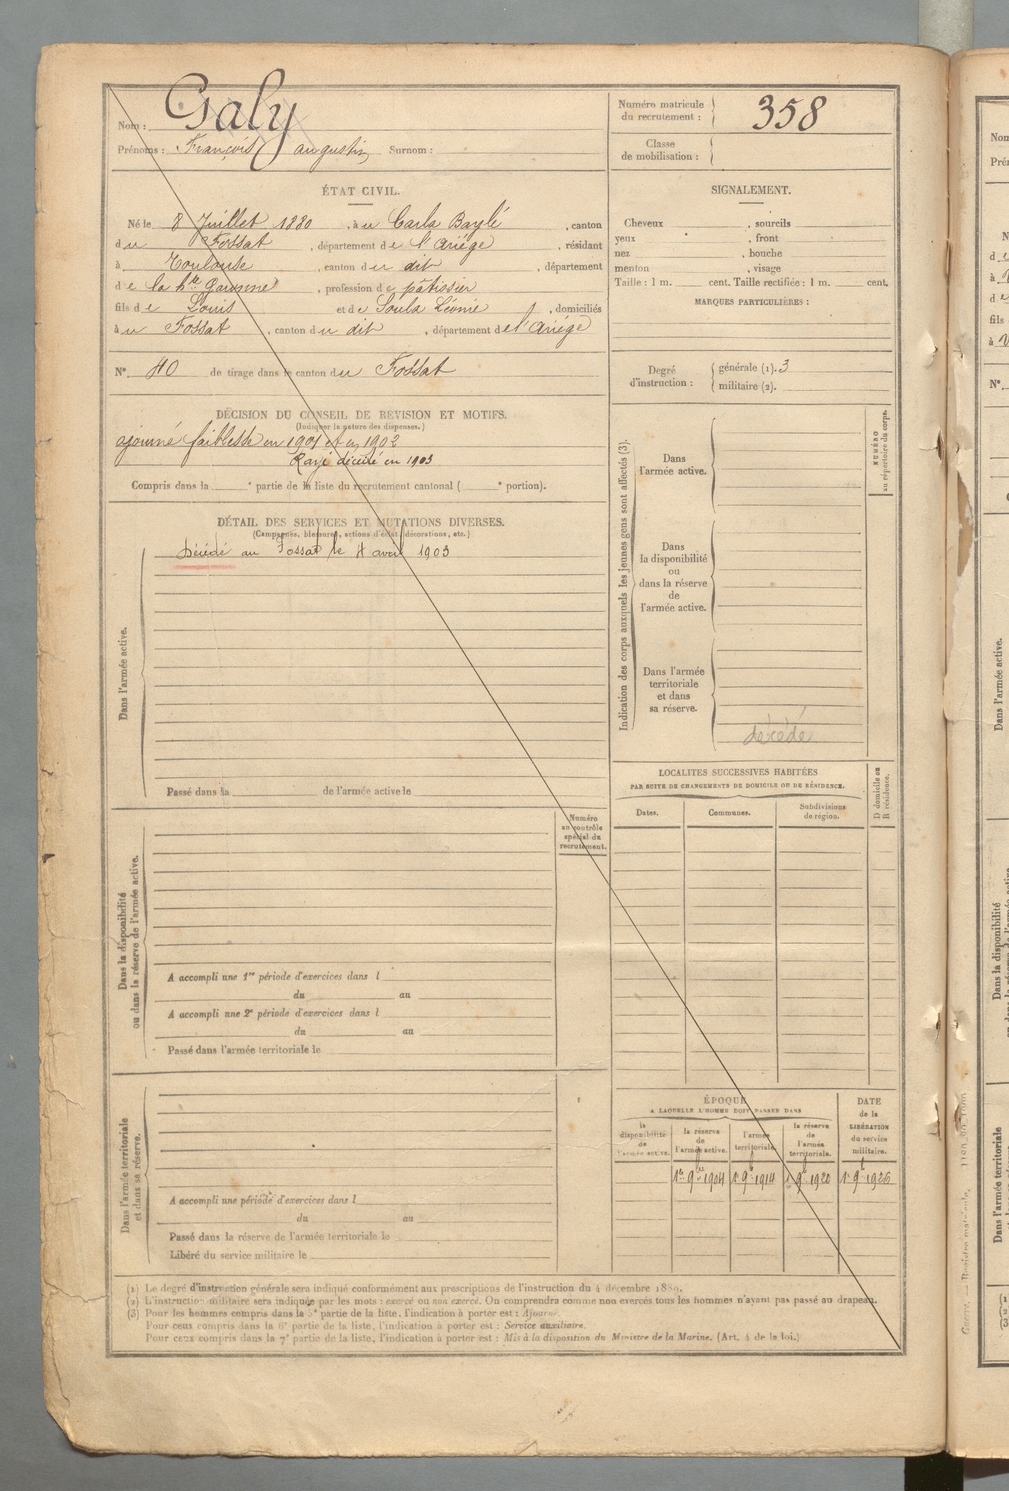 Nom : Galy
Prénoms : François augustin Surnom :
Numéro matricule du recrutement : 358
Classe de mobilisation :
ÉTAT CIVIL.
Né le 8 Juillet 1880, à u Carla Baylé, canton
du Fossat, département de l'Ariége, résidant
à Toulouse, canton du dit, département
de la hte Garonne, profession de pâtissier
fils de Louis et de Soula Léonie, domiciliés
à u Fossat, canton du dit, département de l'Ariége
N° 40 de tirage dans le canton du Fossat
SIGNALEMENT.
Cheveux , sourcils
yeux , front
nez , bouche
menton , visage
Taille : 1 m. cent. Taille rectifiée : 1 m. cent.
MARQUES PARTICULIÈRES :
Degré d'instruction : générale (1). 3
militaire (2).
DÉCISION DU CONSEIL DE REVISION ET MOTIFS.
(Indiquer la nature des dispenses.)
ajourné faiblesse en 1901 et en 1902
Rayé décédé en 1903
Compris dans la e partie de la liste du recrutement cantonal ( e portion).
DÉTAIL DES SERVICES ET MUTATIONS DIVERSES.
(Campagnes, blessures, actions d'éclat, décorations, etc.)
Dans l'armée active.
Décédé au Fossat le 4 avril 1903
Passé dans la de l'armée active le
Indication des corps auxquels les jeunes gens sont affectés (3).
NUMÉRO au répertoire du corps.
Dans l'armée active.
Dans la disponibilité ou dans la réserve de l'armée active.
Dans l'armée territoriale et dans sa réserve.
décédé
LOCALITES SUCCESSIVES HABITÉES
PAR SUITE DE CHANGEMENTS DE DOMICILE OU DE RÉSIDENCE.
Dates. Communes. Subdivisions de région. D domicile ou R résidence.
Numéro au contrôle spécial du recrutement.
Dans la disponibilité ou dans la réserve de l'armée active.
A accompli une 1re période d'exercices dans l
du au
A accompli une 2e période d'exercices dans l
du au
Passé dans l'armée territoriale le
Dans l'armée territoriale et dans sa réserve.
A accompli une période d'exercices dans l
du au
Passé dans la réserve de l'armée territoriale le
Libéré du service militaire le
ÉPOQUE
A LAQUELLE L'HOMME DOIT PASSER DANS
la disponibilité de l'armée active. la réserve de l'armée active. l'armée territoriale. la réserve de l'armée territoriale.
DATE de la LIBÉRATION du service militaire.
1er 9bre 1904 1er 9b 1914 1er 9b 1920 1er 9b 1926
(1) Le degré d'instruction générale sera indiqué conformément aux prescriptions de l'instruction du 4 décembre 1889.
(2) L'instruction militaire sera indiquée par les mots : exercé ou non exercé. On comprendra comme non exercés tous les hommes n'ayant pas passé au drapeau.
(3) Pour les hommes compris dans la 5e partie de la liste, l'indication à porter est : Ajourné.
Pour ceux compris dans la 6e partie de la liste, l'indication à porter est : Service auxiliaire.
Pour ceux compris dans la 7e partie de la liste, l'indication à porter est : Mis à la disposition du Ministre de la Marine. (Art. 4 de la loi.)